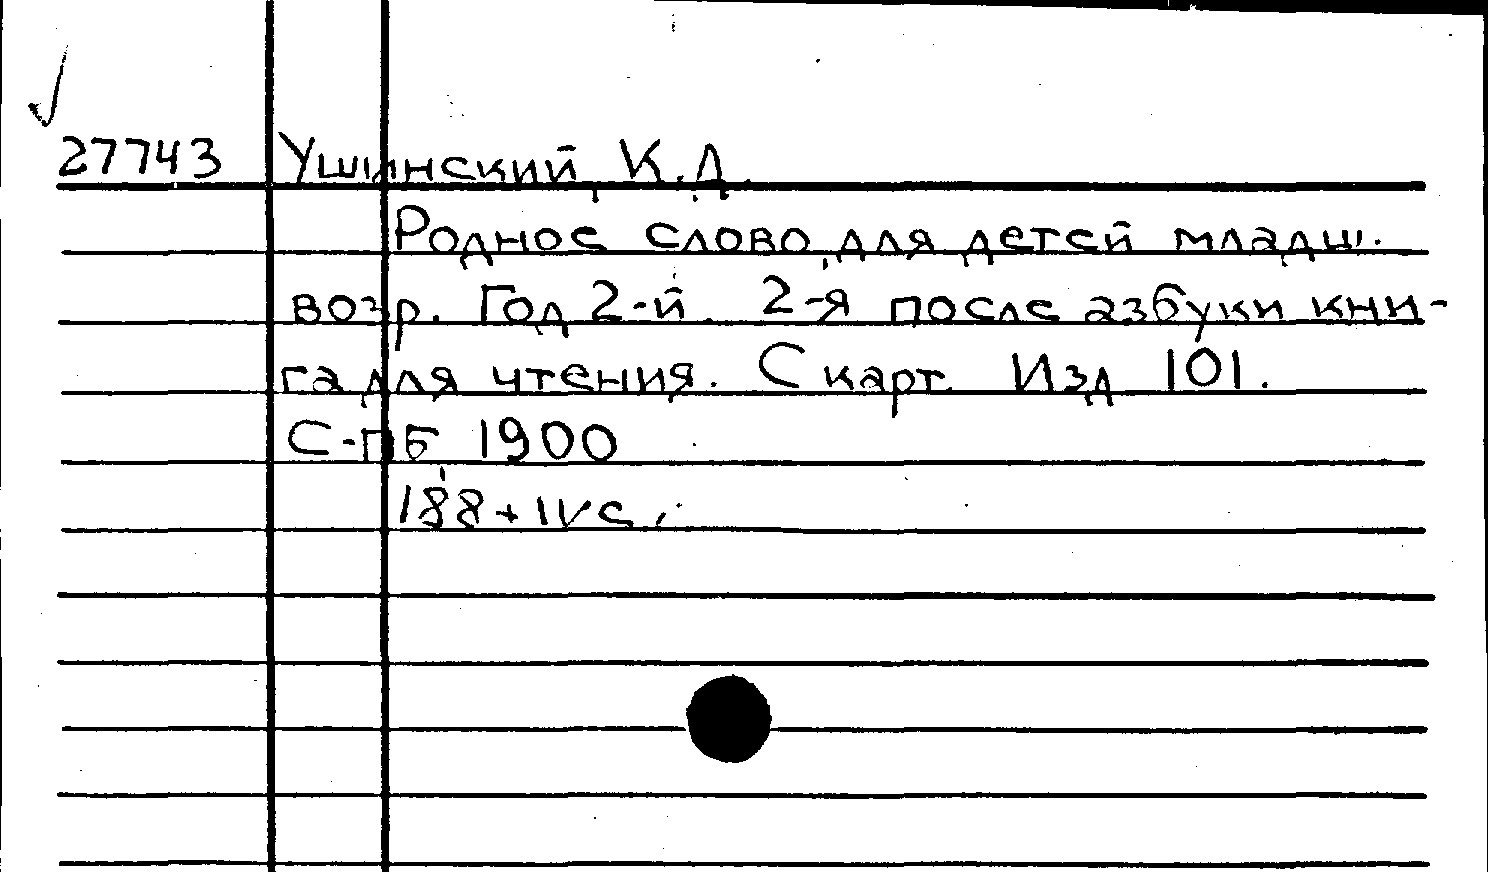 27743 Ушинский, К.Д.
Родное слово для детей младш.
возр. Год 2-й. 2-я после азбуки кни-
га для чтения. С карт. Изд 101.
С-ПБ, 1900
188+IV с.